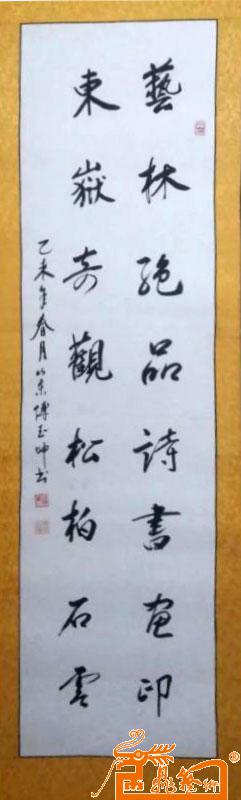 藝林絶品詩書画印
東嶽奇觀松柏石雲
乙未年春月於京傅玉坤书